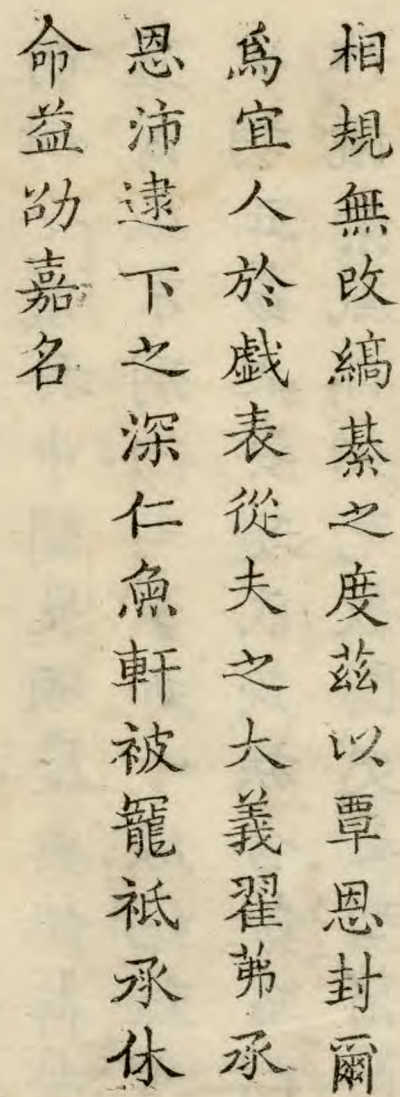 相規無改縞綦之度茲以覃恩封爾
爲宜人於戲表從夫之大義翟茀承
恩沛逮下之深仁魚軒被寵祗承休
命益劭嘉名